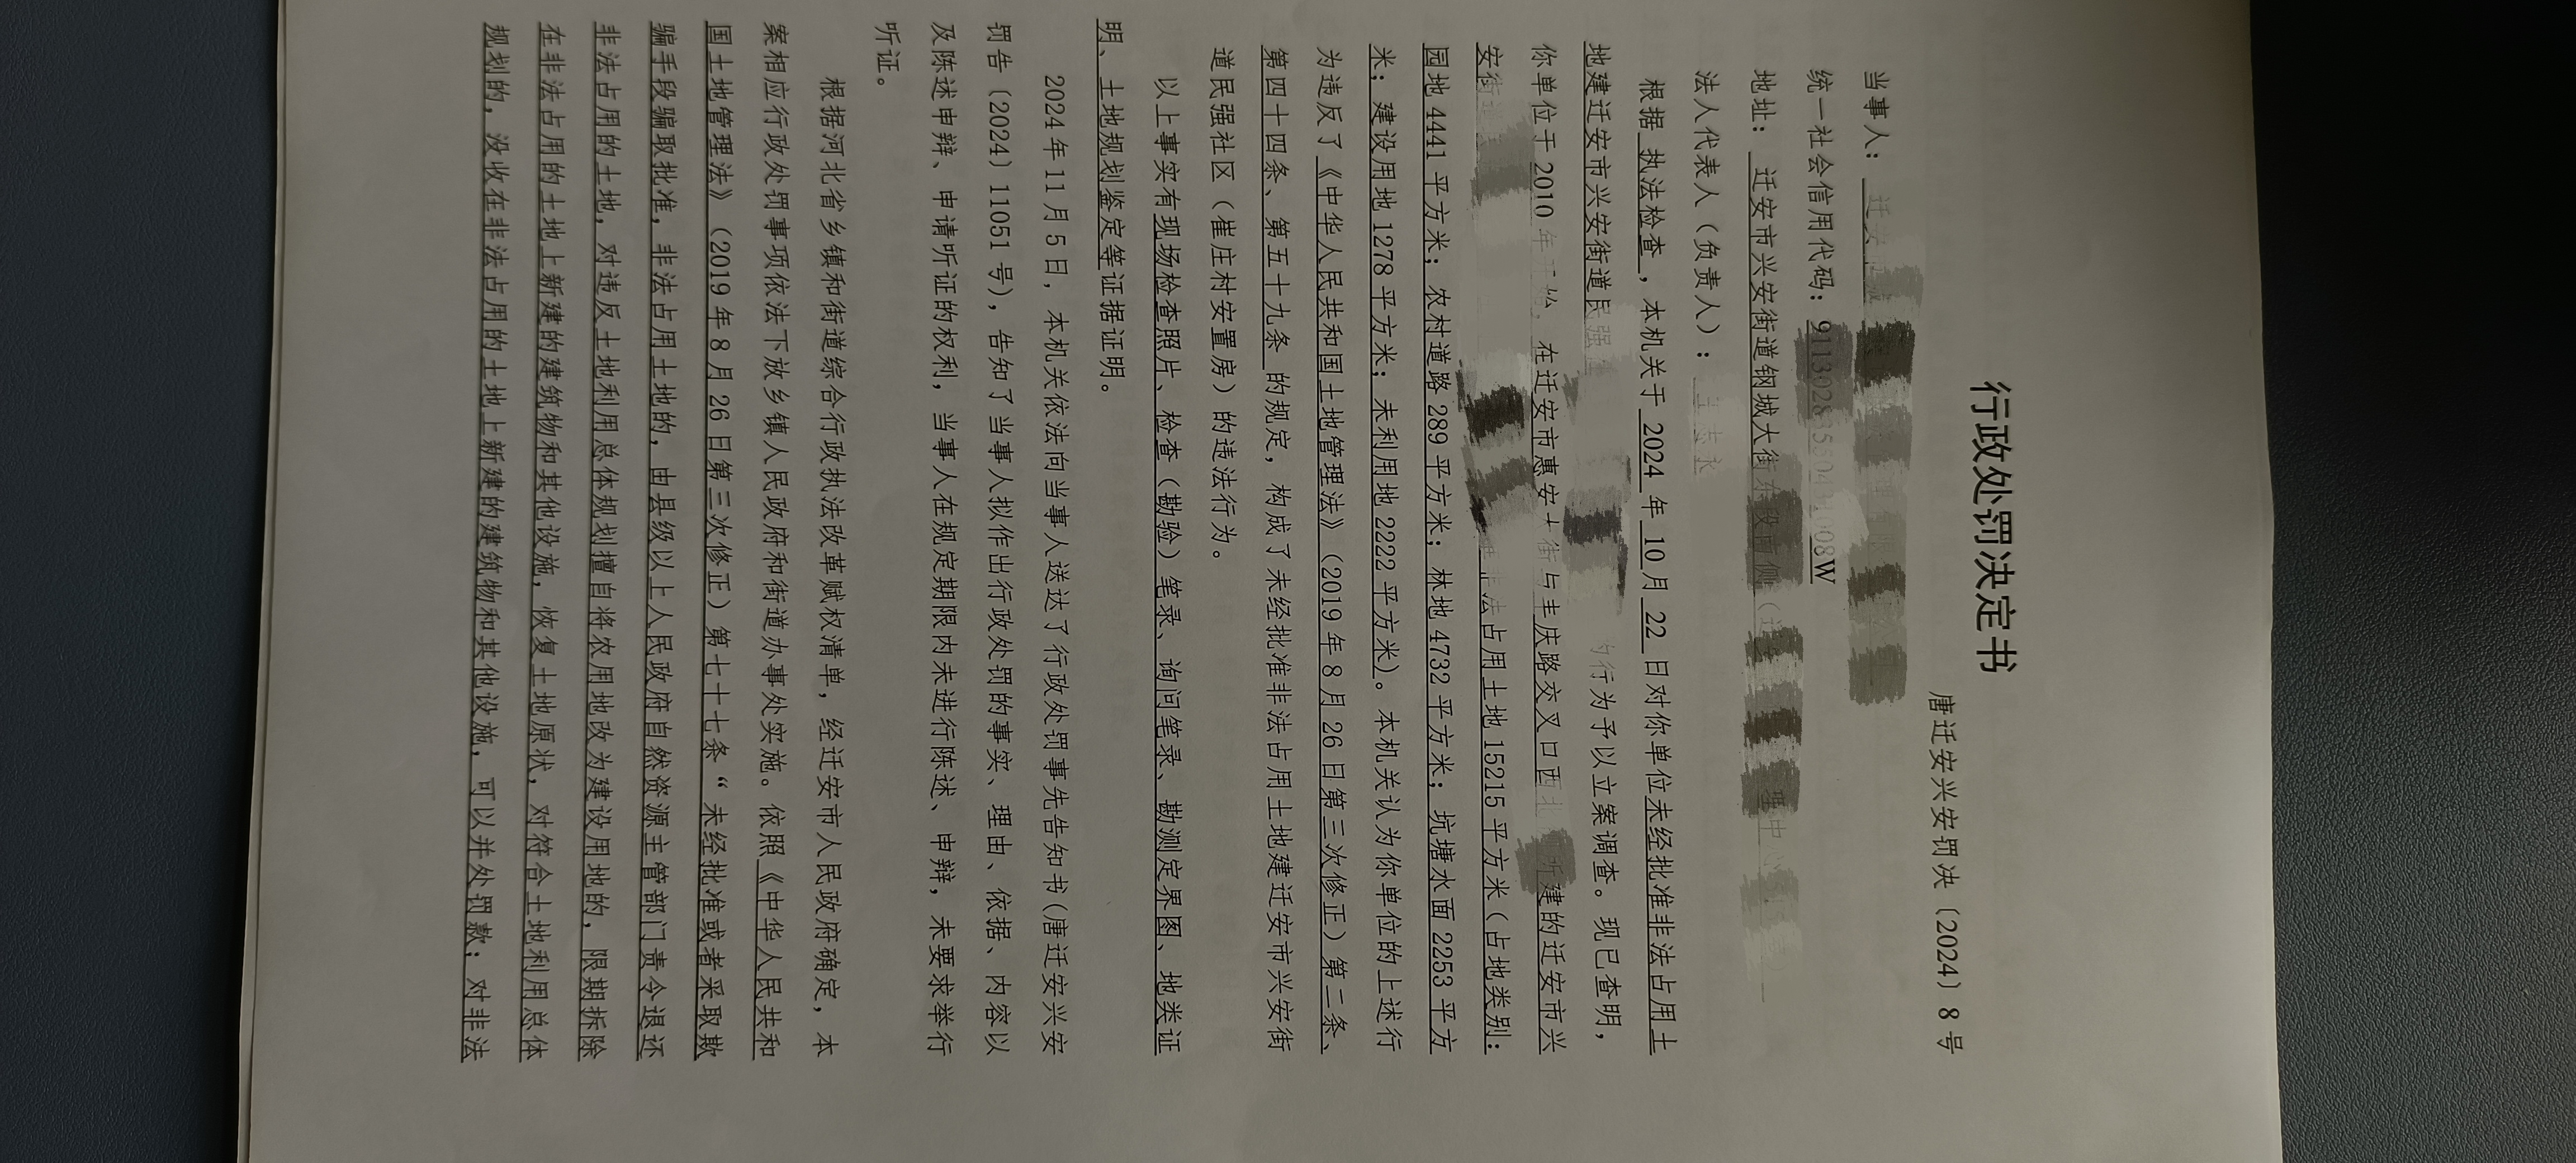 行政处罚决定书
唐迁安兴安罚决〔2024〕8号
当事人：
统一社会信用代码：9113028
地址：迁安市兴安街道钢城大街
法人代表人（负责人）：
根据 执法检查 ，本机关于 2024 年 10 月 22 日对你单位未经批准非法占用土
地建迁安市兴安街道民强 行为予以立案调查。现已查明，
你单位于2010年 ，在迁安市惠安大街与丰庆路交叉口西北 所建的迁安市兴
安街 非法占用土地15215平方米（占地类别：
园地4441平方米；农村道路289平方米；林地4732平方米；坑塘水面2253平方
米；建设用地1278平方米；未利用地2222平方米）。本机关认为你单位的上述行
为违反了《中华人民共和国土地管理法》（2019年8月26日第三次修正）第二条、
第四十四条、第五十九条 的规定，构成了未经批准非法占用土地建迁安市兴安街
道民强社区（崔庄村安置房）的违法行为。
以上事实有现场检查照片、检查（勘验）笔录、询问笔录、勘测定界图、地类证
明、土地规划鉴定等证据证明。
2024年11月5日，本机关依法向当事人送达了行政处罚事先告知书（唐迁安兴安
罚告〔2024〕11051号），告知了当事人拟作出行政处罚的事实、理由、依据、内容以
及陈述申辩、申请听证的权利，当事人在规定期限内未进行陈述、申辩，未要求举行
听证。
根据河北省乡镇和街道综合行政执法改革赋权清单，经迁安市人民政府确定，本
案相应行政处罚事项依法下放乡镇人民政府和街道办事处实施。依照《中华人民共和
国土地管理法》（2019年8月26日第三次修正）第七十七条“未经批准或者采取欺
骗手段骗取批准，非法占用土地的，由县级以上人民政府自然资源主管部门责令退还
非法占用的土地，对违反土地利用总体规划擅自将农用地改为建设用地的，限期拆除
在非法占用的土地上新建的建筑物和其他设施，恢复土地原状，对符合土地利用总体
规划的，没收在非法占用的土地上新建的建筑物和其他设施，可以并处罚款；对非法